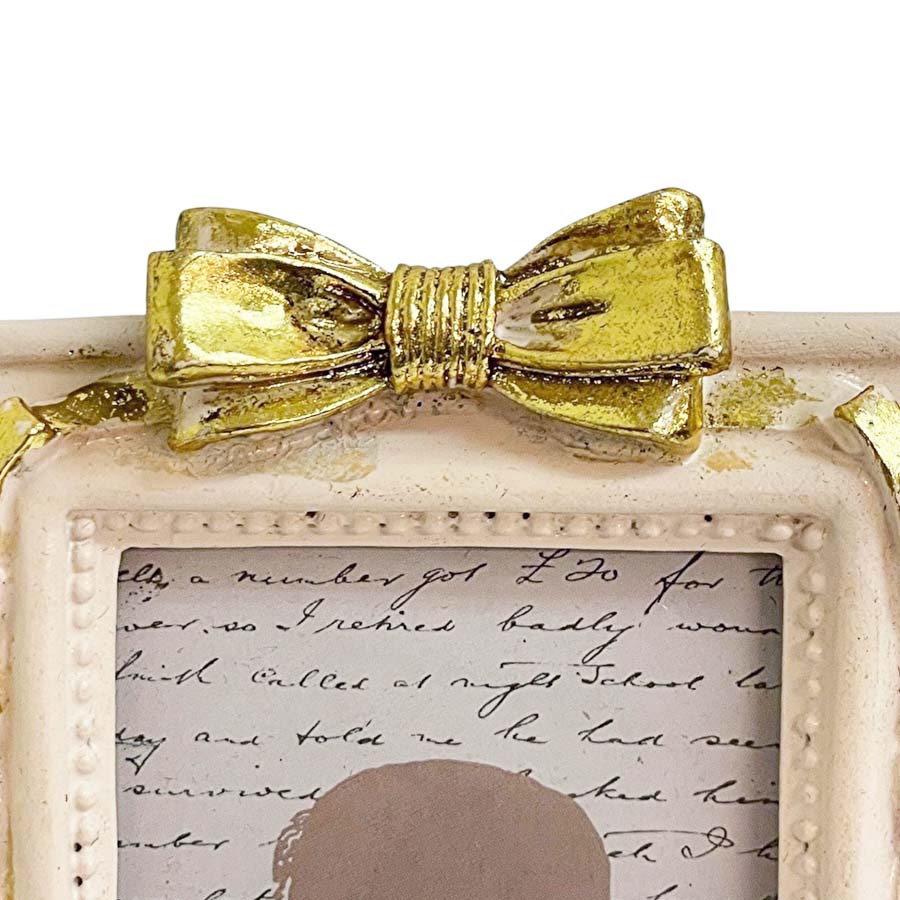 a number got £20 for
so I retired badly
called at night School
day and told me he had seen
survived asked him
number I